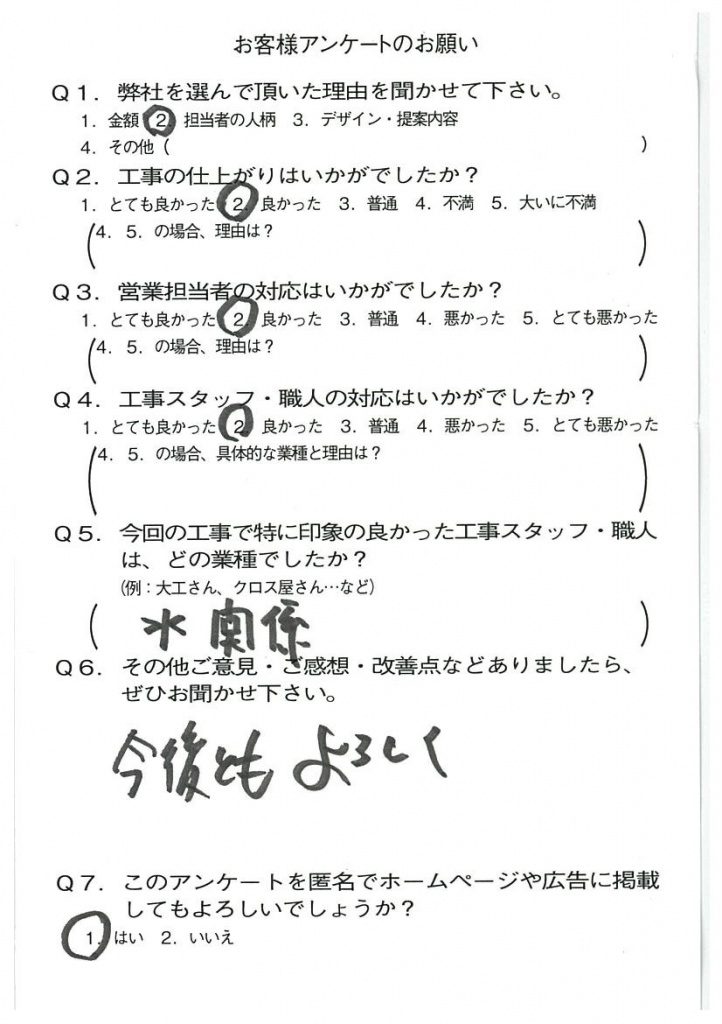 お客様アンケートのお願い
Q1．弊社を選んで頂いた理由を聞かせて下さい。
1．金額 2．担当者の人柄 3．デザイン・提案内容
4．その他（ ）
Q2．工事の仕上がりはいかがでしたか？
1．とても良かった 2．良かった 3．普通 4．不満 5．大いに不満
（4．5．の場合、理由は？ ）
Q3．営業担当者の対応はいかがでしたか？
1．とても良かった 2．良かった 3．普通 4．悪かった 5．とても悪かった
（4．5．の場合、理由は？ ）
Q4．工事スタッフ・職人の対応はいかがでしたか？
1．とても良かった 2．良かった 3．普通 4．悪かった 5．とても悪かった
（4．5．の場合、具体的な業種と理由は？ ）
Q5．今回の工事で特に印象の良かった工事スタッフ・職人
は、どの業種でしたか？
（例：大工さん、クロス屋さん…など）
（ 水関係 ）
Q6．その他ご意見・ご感想・改善点などありましたら、
ぜひお聞かせ下さい。
今後とも よろしく
Q7．このアンケートを匿名でホームページや広告に掲載
してもよろしいでしょうか？
1．はい 2．いいえ